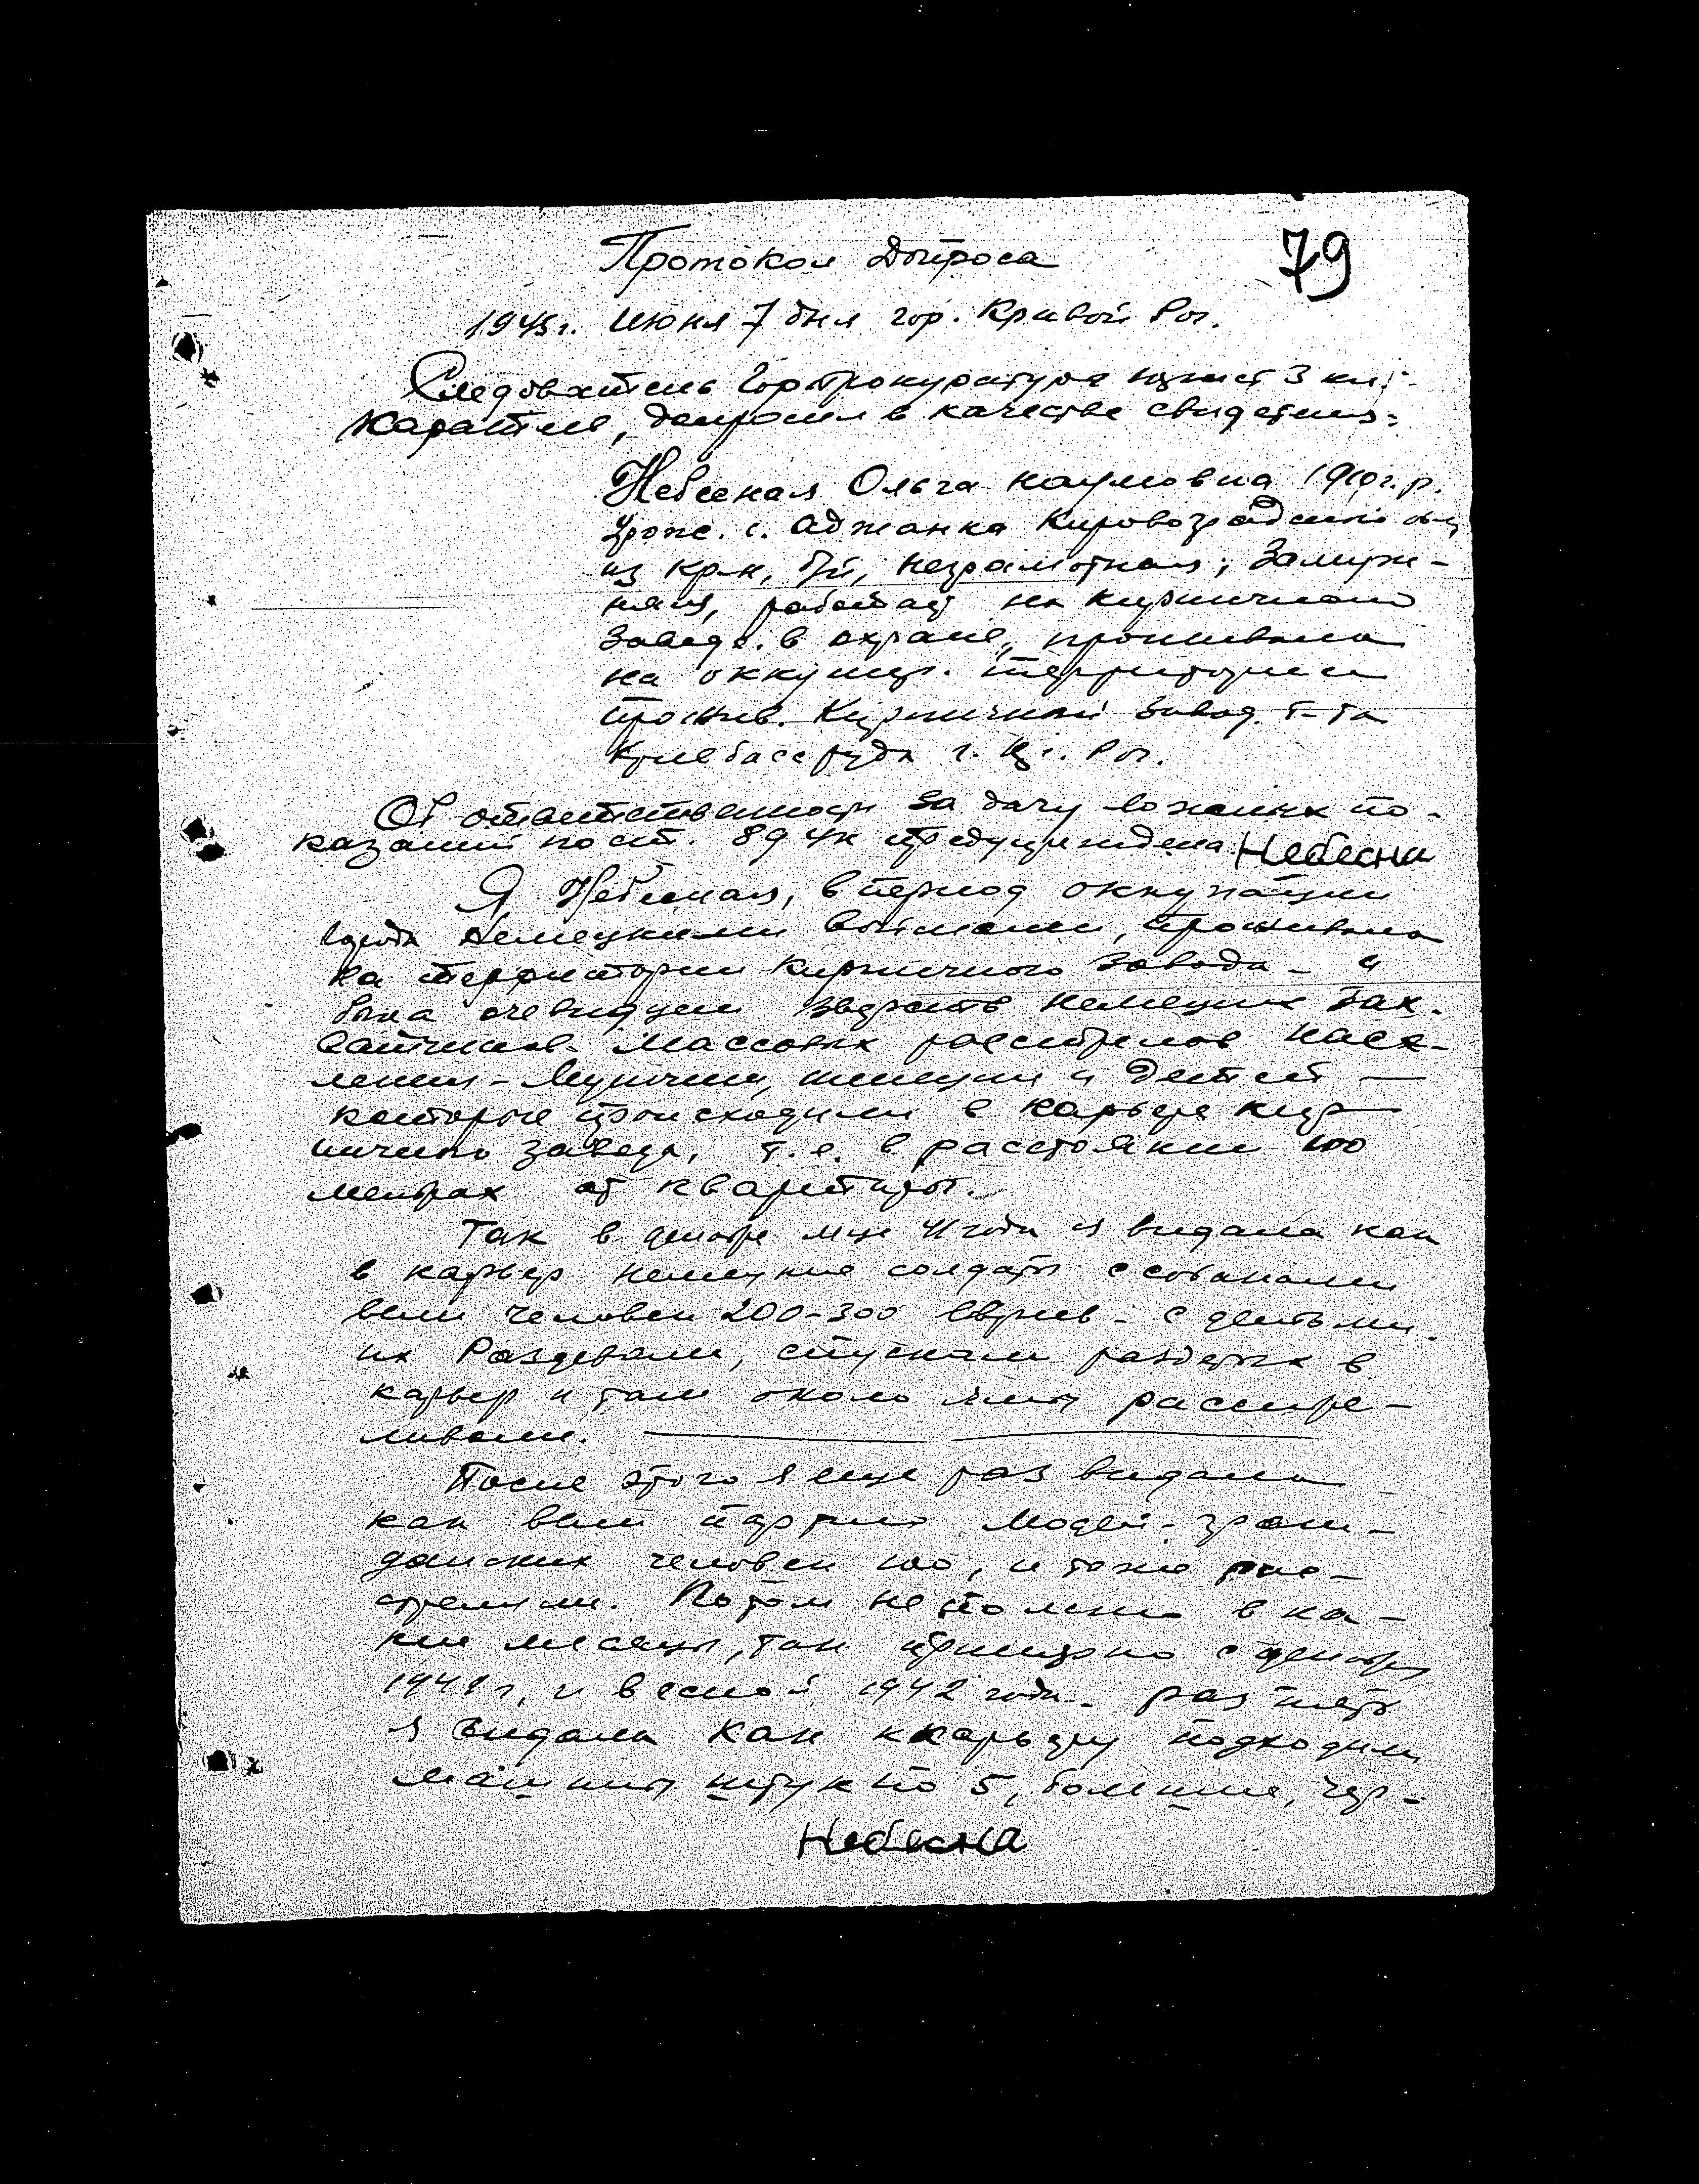 79
Протокол допроса
1945 г. Июня 7 дня гор. Кривой Рог.
Следователь Горпрокуратуры юрист 3 кл.
допросил в качестве свидетеля:
Небесная Ольга Наумовна 1910 г.р.
урож. с. Аджамка Кировоградской обл
из кр-н, б/п, неграмотная, замуж-
няя, работает на кирпичном
заводе в охране, проживала
на оккупир. территории
прожив. Кирпичный завод т-та
Кривбассруда г. Кр. Рог.
Об ответственности за дачу ложных по-
казаний по ст. 89 УК предупреждена Небесна
Я Небесная, в период оккупации
города немецкими войсками, проживала
на территории кирпичного завода - и
была очевидцем зверств немецких зах-
ватчиков массовых расстрелов насе-
ления - мужчин, женщин и детей —
которые происходили в карьере кир-
пичного завода, т.е. в расстоянии 100
метрах от квартиры.
Так в декабре м-це 41 года я видала как
в карьер немецкие солдаты с собаками
вели человек 200-300 евреев - с детьми.
их раздевали, спускали раздетых в
карьер и там около ямы расстре-
ливали.
После этого я еще раз видала
как вели партию людей - граж-
данских человек 100, и тоже рас-
стреляли. Потом не помню в ка-
кие месяцы, так примерно с декабря
1941 г. и весной 1942 года раз пять
я видала как к карьеру подходили
машины штук по 5, большие, чер-
Небесна